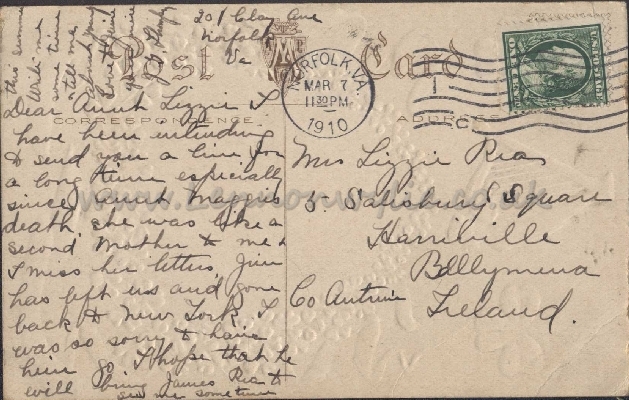 201 Clay Ave
Norfolk
Va
Post Card
CORRESPONDENCE
ADDRESS
NORFOLK, VA.
MAR 7
11 30 PM
1910
Dear Aunt Lizzie I
have been intending
to send you a line for
a long time especially
since Aunt Maggies
death. she was like a
second Mother to me &
I miss her letters. Jim
has left us and gone
back to New York. I
was so sorry to have
him go. I hope that he
will bring James Rea to
see me sometime
this summer
Write me
some time
tell me
about your
Mrs Lizzie Rea
5. Salisbury Square
Harriville
Ballymena
Co Antrim
Ireland.